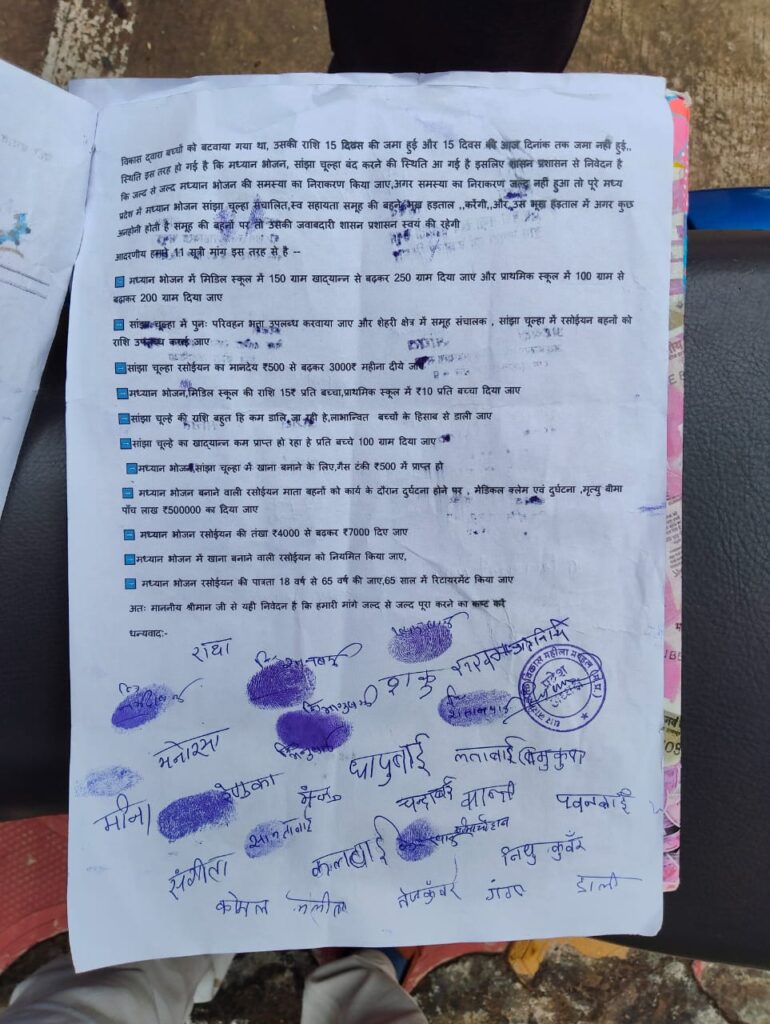 विकास द्वारा बच्चों को बटवाया गया था, उसकी राशि 15 दिवस की जमा हुई और 15 दिवस की आज दिनांक तक जमा नही हुई..
स्थिति इस तरह हो गई है कि मध्यान भोजन, सांझा चूल्हा बंद करने की स्थिति आ गई है इसलिए शासन प्रशासन से निवेदन है
कि जल्द से जल्द मध्यान भोजन की समस्या का निराकरण किया जाए,अगर समस्या का निराकरण जल्द नहीं हुआ तो पूरे मध्य
प्रदेश में मध्यान भोजन सांझा चूल्हा संचालित,स्व सहायता समूह की बहने भूख हड़ताल ,,करेंगी,और,उस भूख हड़ताल में अगर कुछ
अनहोनी होती है समूह की बहनों पर तो उसकी जवाबदारी शासन प्रशासन स्वयं की रहेगी
आदरणीय हमारे 11 सूत्री मांग इस तरह से है --
मध्यान भोजन में मिडिल स्कूल में 150 ग्राम खाद्यान्न से बढ़कर 250 ग्राम दिया जाए और प्राथमिक स्कूल में 100 ग्राम से
बढ़ाकर 200 ग्राम दिया जाए
सांझा चूल्हा में पुनः परिवहन भत्ता उपलब्ध करवाया जाए और शेहरी क्षेत्र में समूह संचालक , सांझा चूल्हा में रसोईयन बहनों को
राशि उपलब्ध कराई जाए
सांझा चूल्हा रसोईयन का मानदेय ₹500 से बढ़कर 3000₹ महीना दीये जाए
मध्यान भोजन,मिडिल स्कूल की राशि 15₹ प्रति बच्चा,प्राथमिक स्कूल में ₹10 प्रति बच्चा दिया जाए
सांझा चूल्हे की राशि बहुत हि कम डालि,जा रही है,लाभान्वित बच्चों के हिसाब से डाली जाए
सांझा चूल्हे का खाद्यान्न कम प्राप्त हो रहा हे प्रति बच्चे 100 ग्राम दिया जाए
मध्यान भोजन,सांझा चूल्हा में खाना बनाने के लिए,गैस टंकी ₹500 में प्राप्त हो
मध्यान भोजन बनाने वाली रसोईयन माता बहनों को कार्य के दौरान दुर्घटना होने पर , मेडिकल क्लेम एवं दुर्घटना ,मृत्यु बीमा
पाँच लाख ₹500000 का दिया जाए
मध्यान भोजन रसोईयन की तंखा ₹4000 से बढ़कर ₹7000 दिए जाए
मध्यान भोजन में खाना बनाने वाली रसोईयन को नियमित किया जाए,
मध्यान भोजन रसोईयन की पात्रता 18 वर्ष से 65 वर्ष की जाए,65 साल में रिटायरमेंट किया जाए
अतः माननीय श्रीमान जी से यही निवेदन है कि हमारी मांगे जल्द से जल्द पूरा करने का कष्ट करें
धन्यवादः-
राधा
शकु
मनोरमा
धापुबाई
लताबाई
मीना
रेणुका
मंजु
चन्दाबाई
शान्ती
पवनबाई
शान्ताबाई
संगीता
कालाबाई
कोमल
ललीता
तेजकुँवर
गंगा
डाली